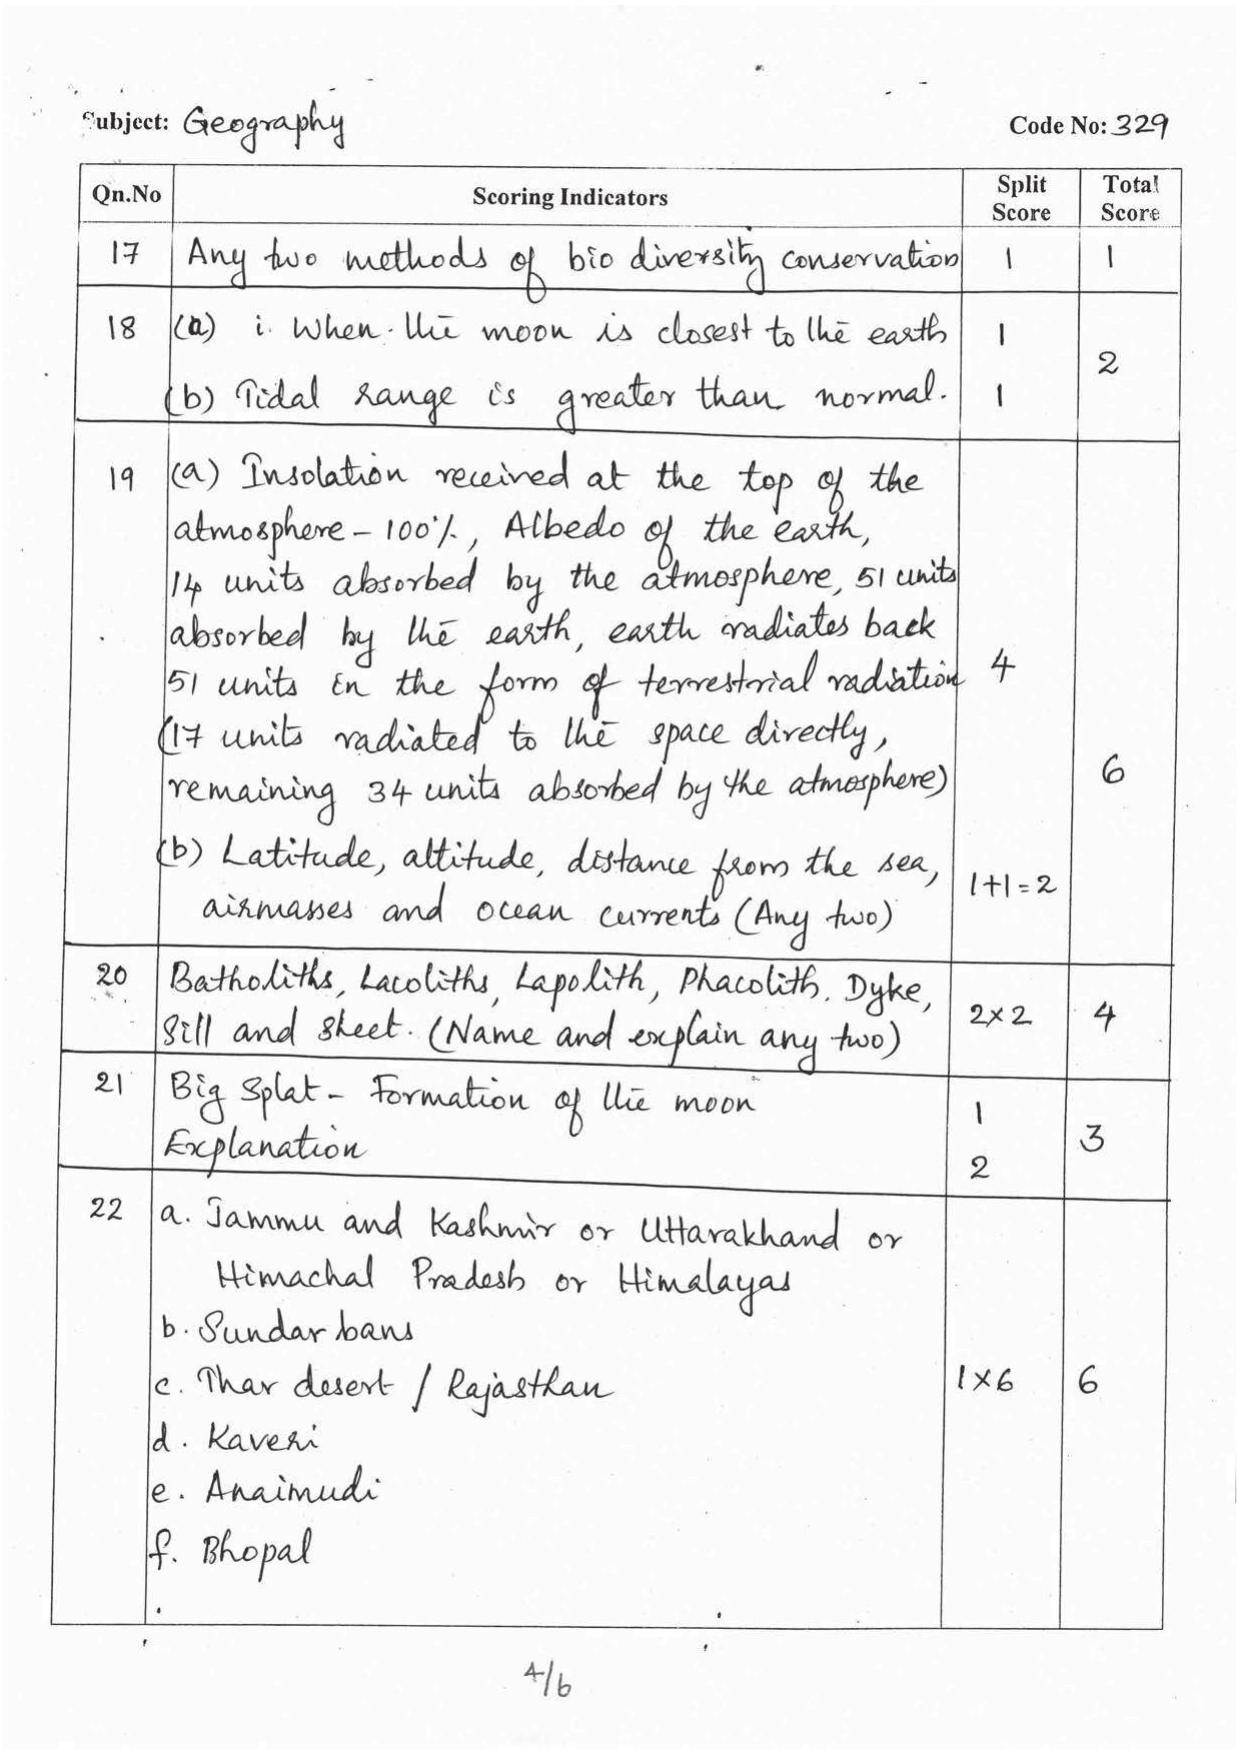 Subject: Geography Code No: 329
Qn.No Scoring Indicators Split Score Total Score
17 Any two methods of bio diversity conservation 1 1
18 (a) i. When the moon is closest to the earth 1
2
(b) Tidal range is greater than normal. 1
19 (a) Insolation received at the top of the
atmosphere - 100%, Albedo of the earth,
14 units absorbed by the atmosphere, 51 units
absorbed by the earth, earth radiates back
51 units in the form of terrestrial radiation 4
(17 units radiated to the space directly,
remaining 34 units absorbed by the atmosphere) 6
(b) Latitude, altitude, distance from the sea,
airmasses and ocean currents (Any two) 1+1=2
20 Batholiths, Lacoliths, Lapolith, Phacolith, Dyke,
Sill and sheet. (Name and explain any two) 2×2 4
21 Big Splat - Formation of the moon 1
Explanation 2 3
22 a. Jammu and Kashmir or Uttarakhand or
Himachal Pradesh or Himalayas
b. Sundar bans
c. Thar desert / Rajasthan 1×6 6
d. Kaveri
e. Anaimudi
f. Bhopal
4/6